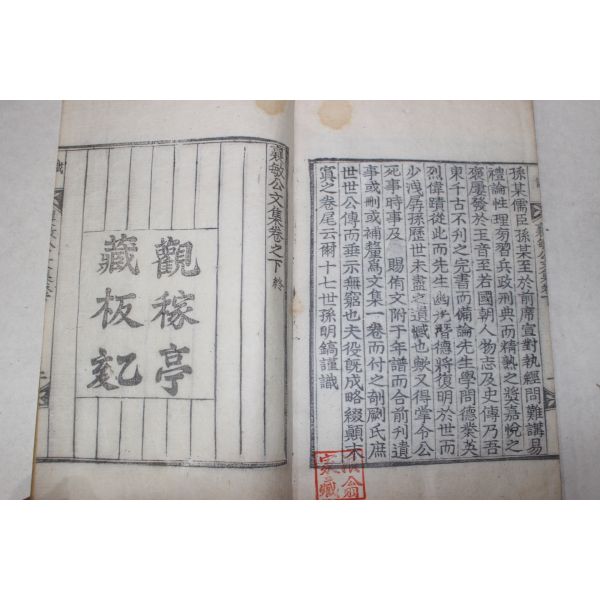 孫某儒臣孫某至於前席宣對執經問難講易
禮論性理旁習兵政刑典而精熟之奬嘉悅之
褒屢發於王音至若國朝人物志及史傳乃吾
東千古不刊之完書而備論先生學問德業英
烈偉蹟從此而先生幽光潛德將復明於世而
少洩孱孫歷世未盡之遺憾也歟又得嘗令公
死事時事及 賜侑文附于年譜而合前刊遺
事或刪或補釐爲文集一卷而付之剞劂氏庶
世世公傳而垂示無窮也夫役旣成略綴顚末
寘之卷尾云爾十七世孫明鎬謹識
敏公文集卷之下終
觀稼亭
藏板
家藏